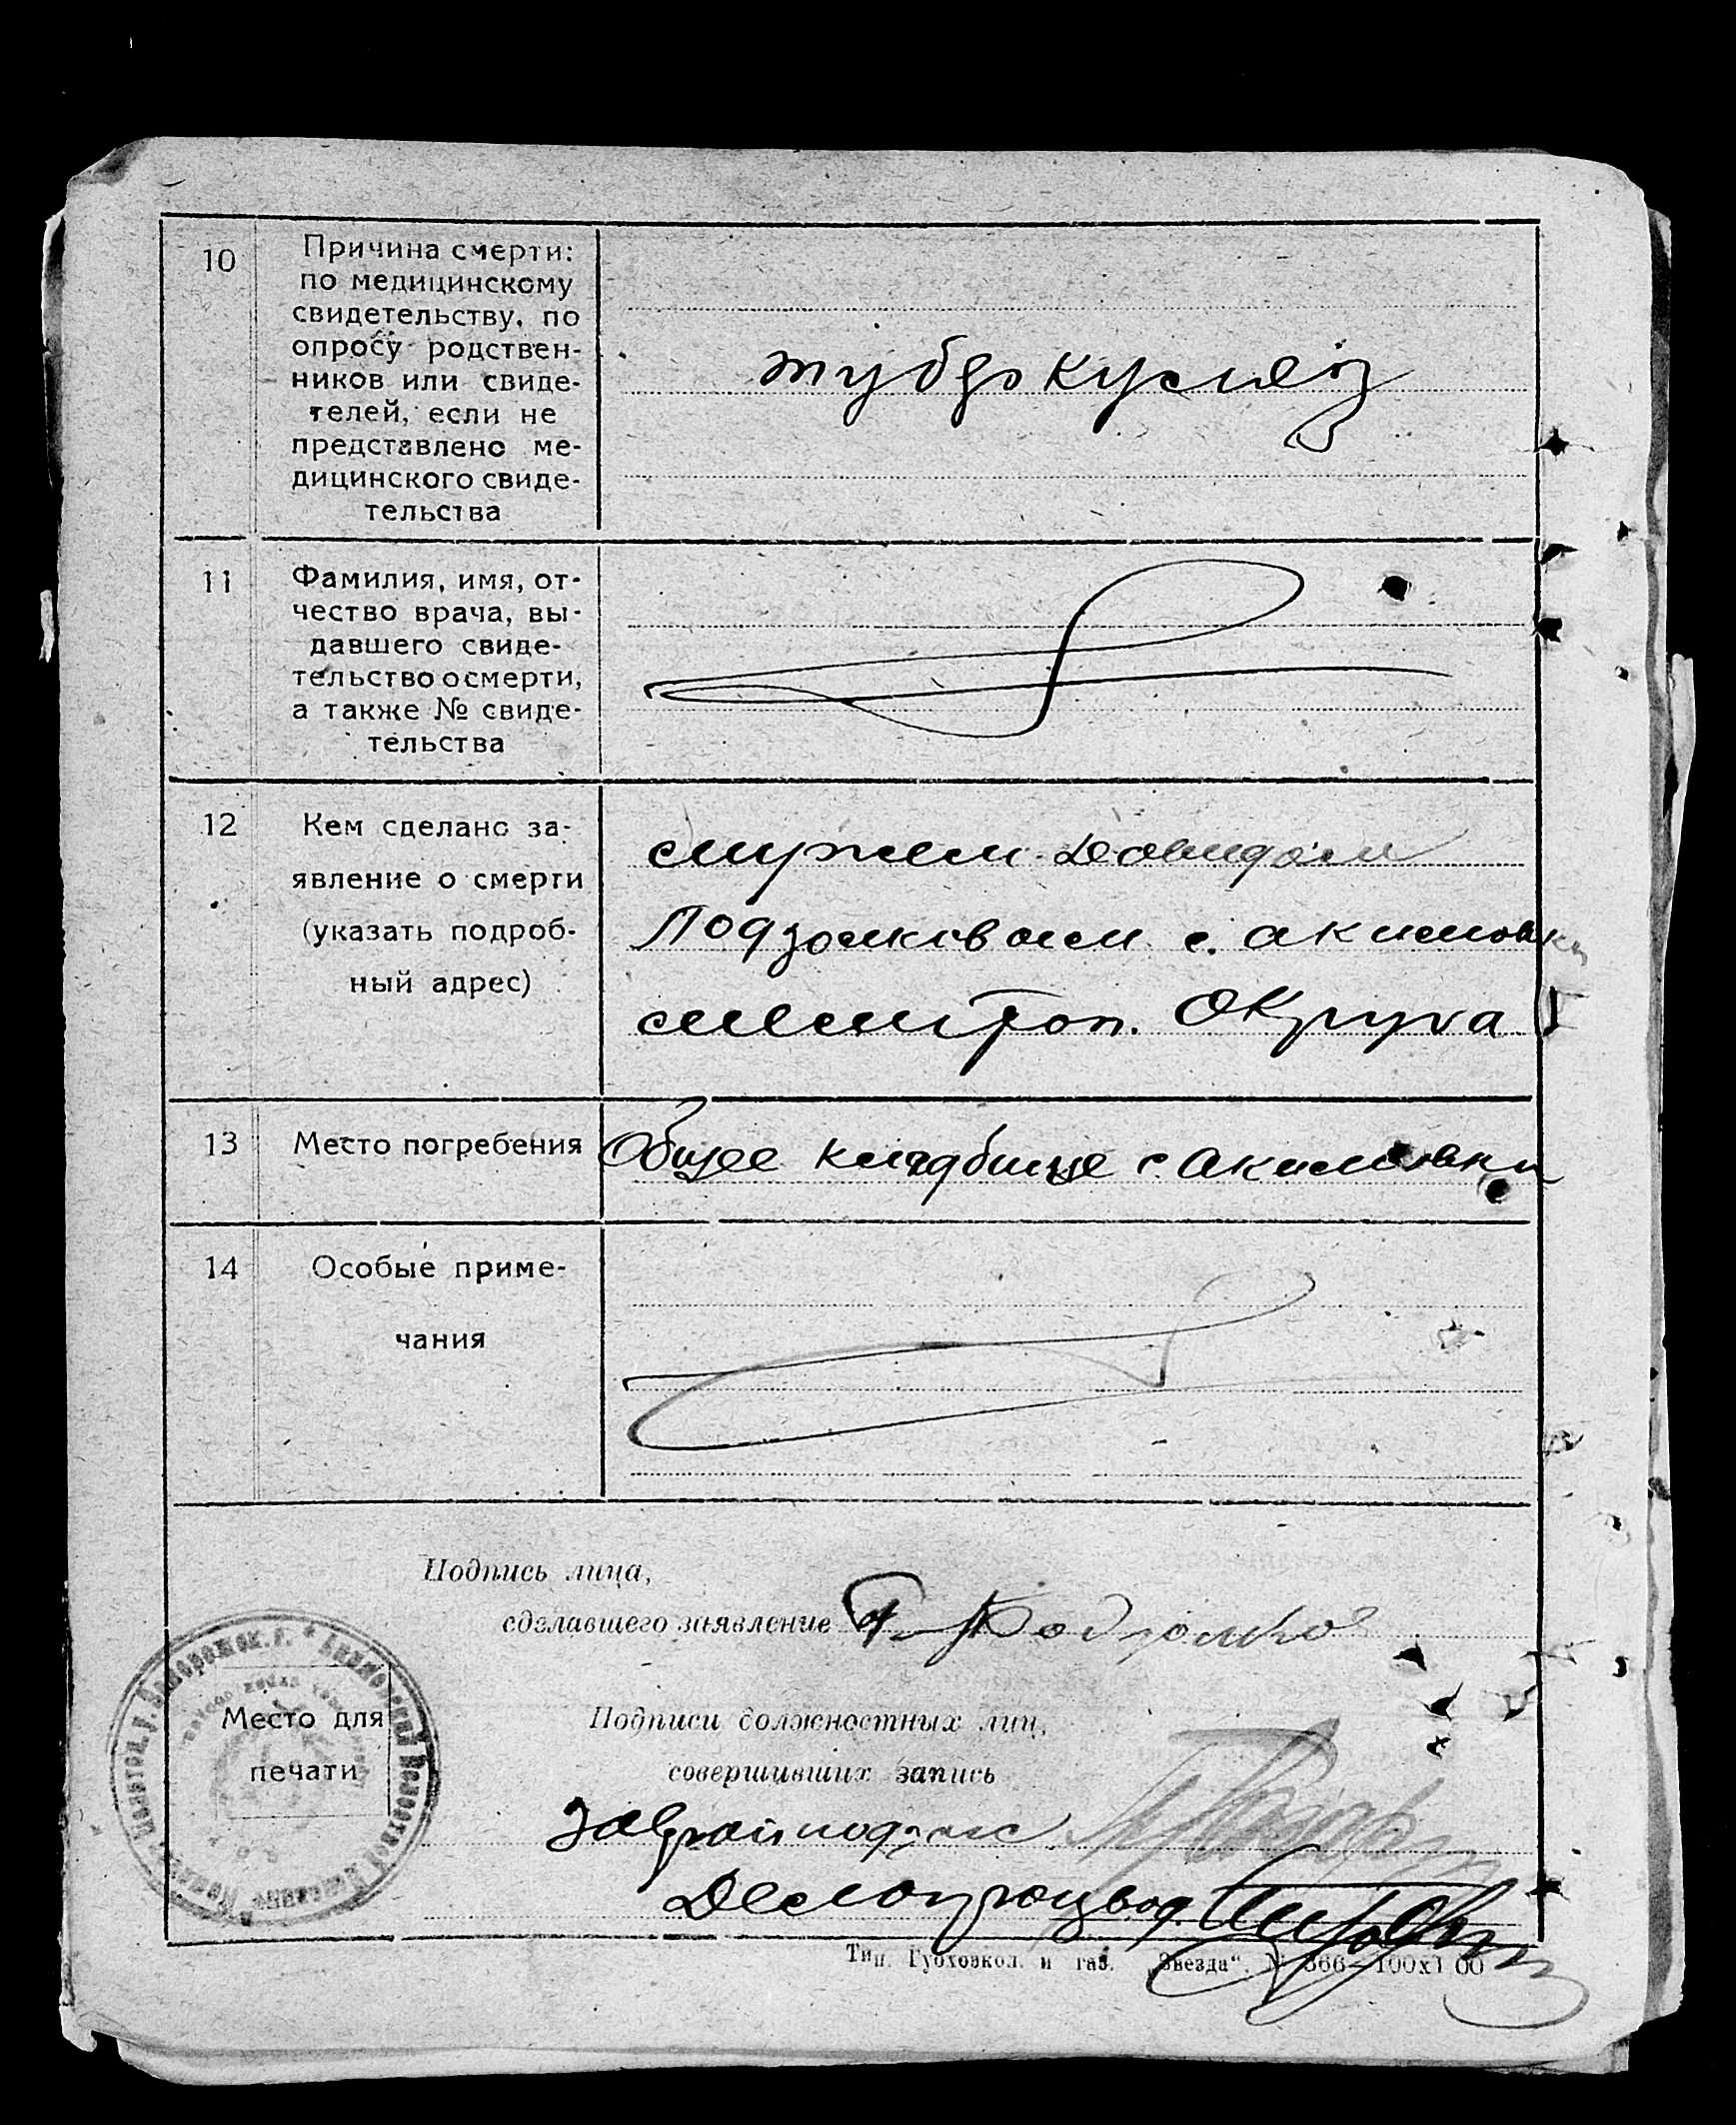 10
Причина смерти:
по медицинскому
свидетельству, по
опросу родствен-
ников или свиде-
телей, если не
представлено ме-
дицинского свиде-
тельства
туберкулез
11
Фамилия, имя, от-
чество врача, вы-
давшего свиде-
тельство о смерти,
а также № свиде-
тельства
12
Кем сделано за-
явление о смерти
(указать подроб-
ный адрес)
мужем Давидом
Подзолковым с. Акимовки
мелитоп. Округа
13
Место погребения
Общее кладбище с. Акимовки
14
Особые приме-
чания
Подпись лица,
сделавшего заявление
Место для
печати
Подписи должностных лиц,
совершивших запись
Заврайподзагс
Делопроизвод
Тип. Губхозкол. и газ. „Звезда“.